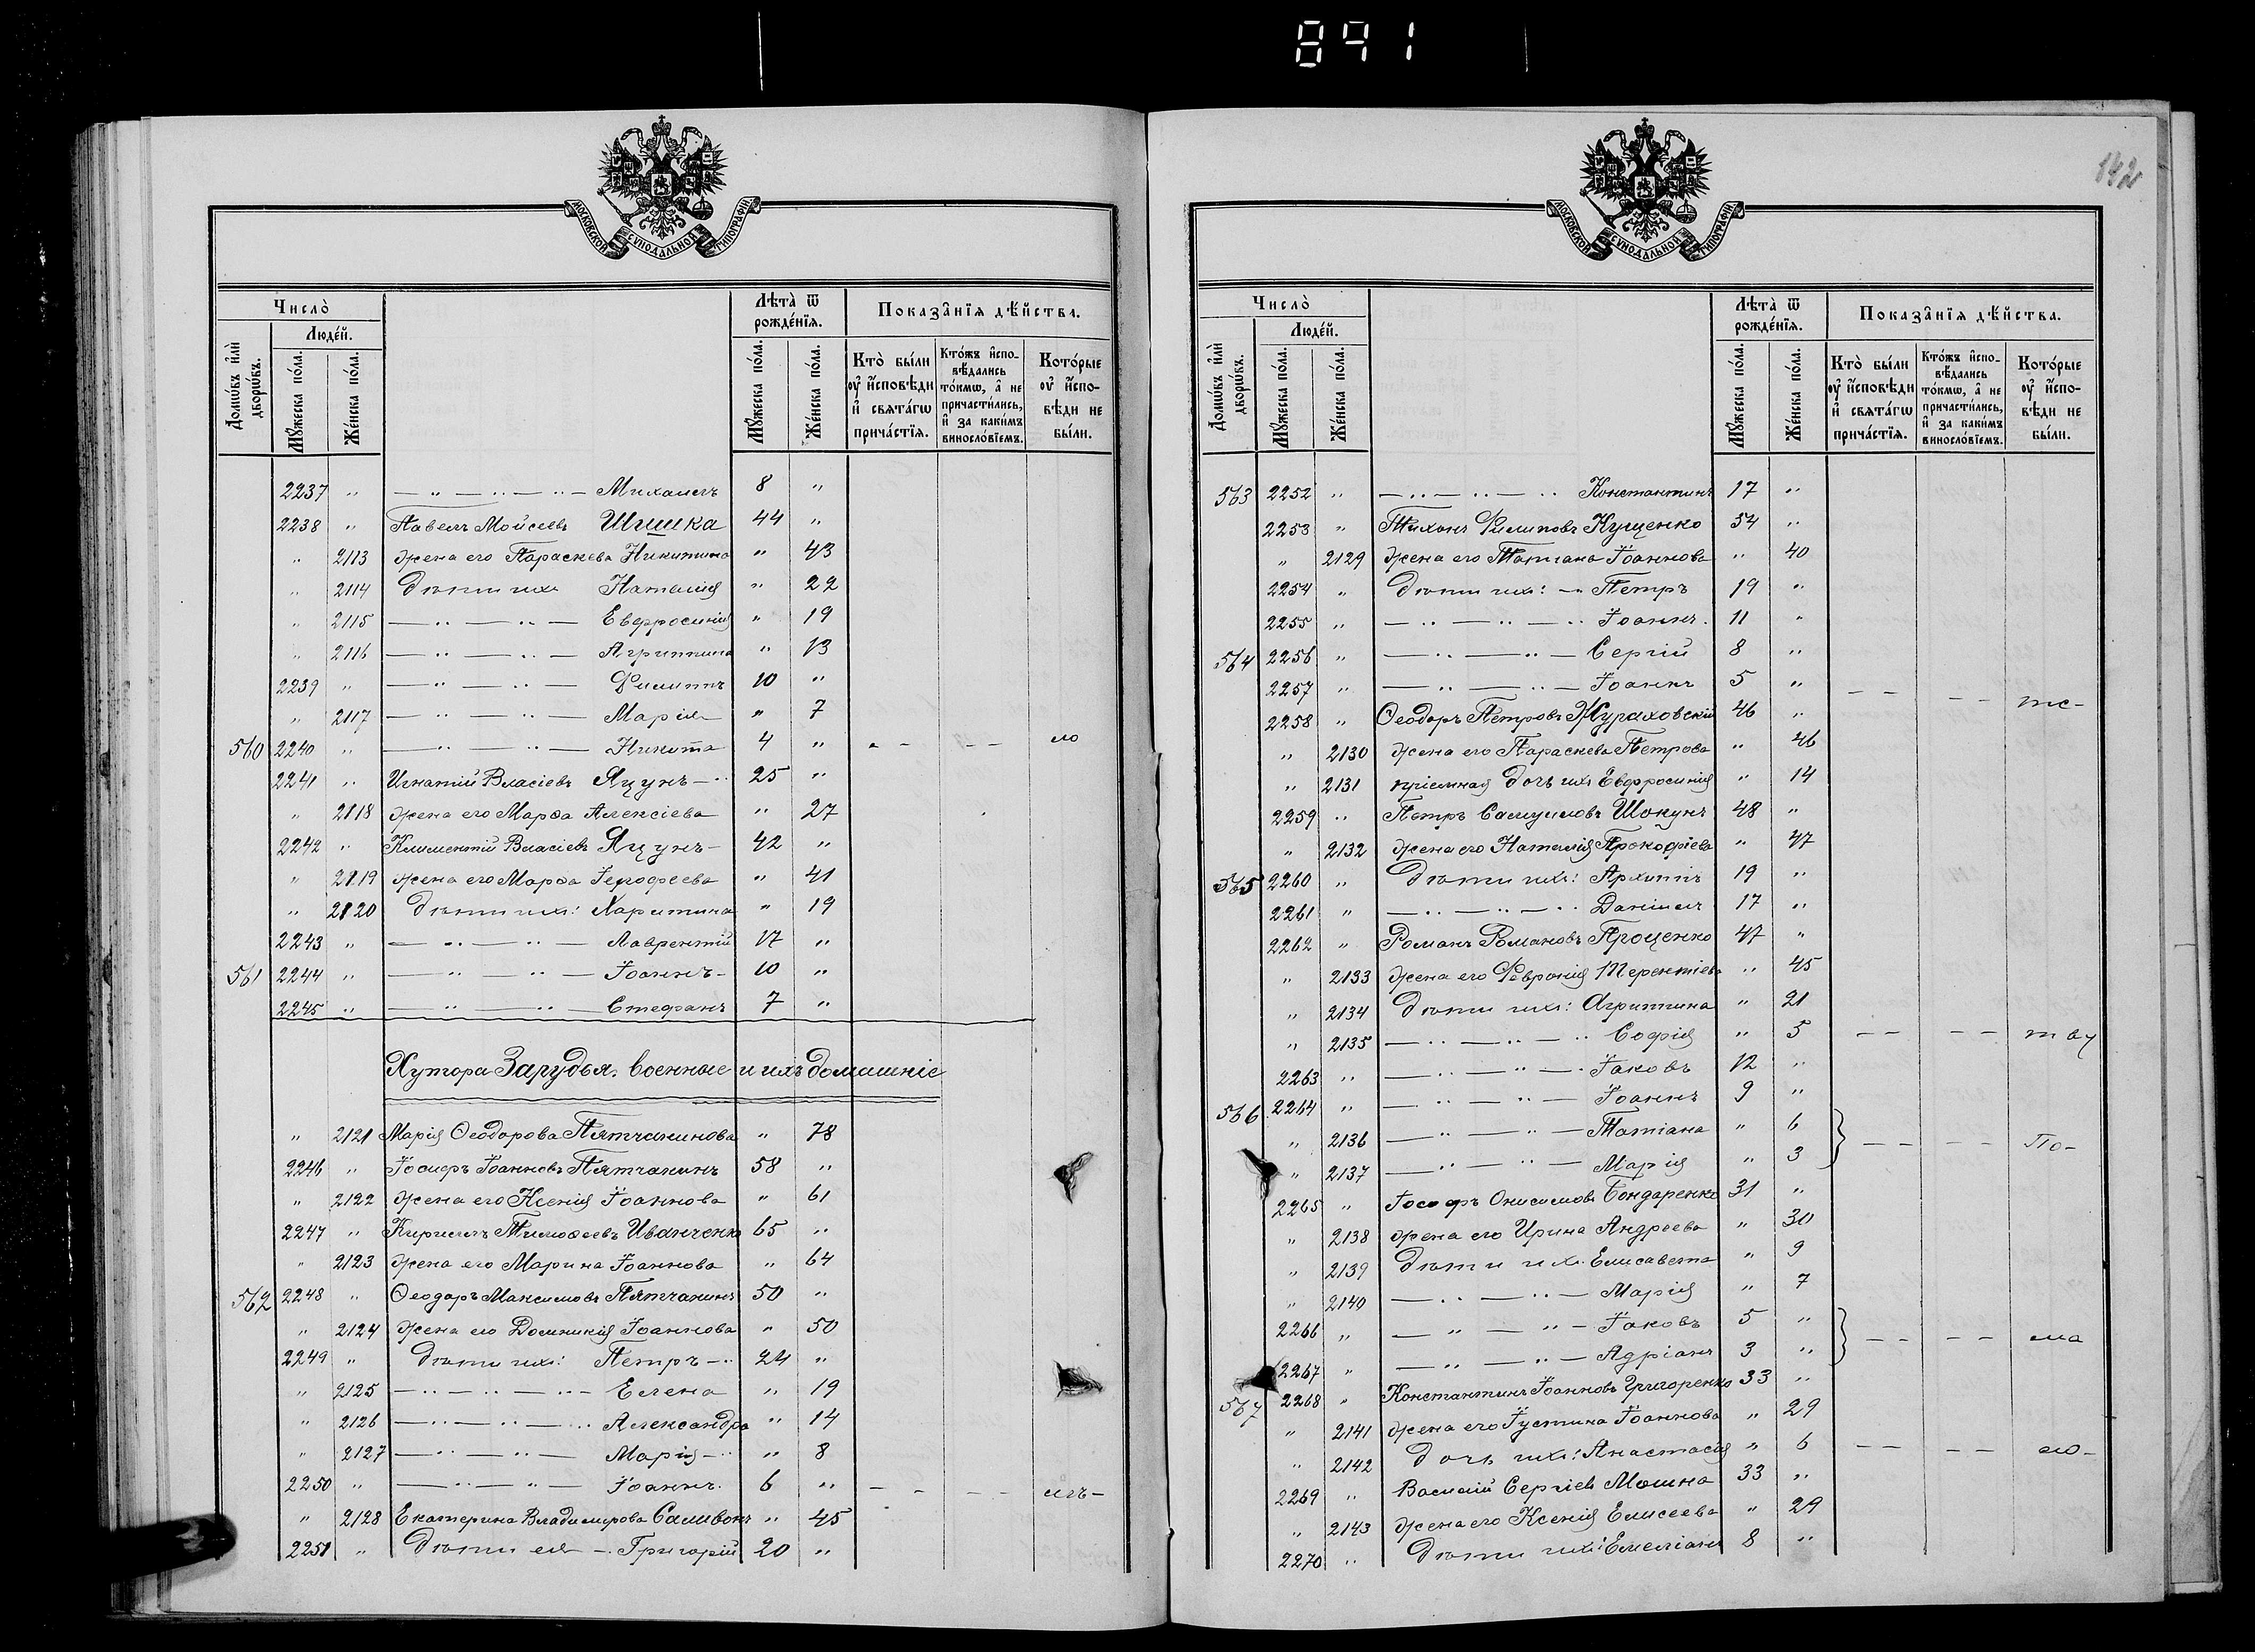 891
142
МОСКОВСКОЙ СѴНОДАЛЬНОЙ ТИПОГРАФИИ
Число̀
Домѡ́въ и҆лѝ дворѡ́въ.
Люде́й.
Мꙋ́жеска по́ла.
Же́нска по́ла.
Лѣта̀ ѿ рожде́нїѧ.
Мꙋ́жеска по́ла.
Же́нска по́ла.
Показа̑нїѧ дѣ́йства.
Кто̀ бы́ли ᲂу҆ и҆́сповѣди и҆ свѧта́гѡ прича́стїѧ.
Кто́жъ и҆спо-вѣ́дались то́кмѡ, а҆ не причасти́лись, и҆ за каки́мъ виносло́вїемъ.
Кото́рые ᲂу҆ и҆́спо-вѣди не бы́ли.
2237 " — " — " — " — Михаилъ 8 "
2238 " Павелъ Мойсеевъ Шишка 44 "
" 2113 жена его Параскева Никитина " 43
" 2114 дѣти ихъ Наталія " 22
" 2115 — " — " — Евфросинія " 19
" 2116 — " — " — Агриппина " 13
2239 " — " — " — Филиппъ 10 "
" 2117 — " — " — Марія " 7
560 2240 " — " — " — Никита 4 " - - - - ло
2241 " Игнатій Власіевъ Яцунъ — " 25 "
" 2118 жена его Марѳа Алексіева " 27
2242 " Климентій Власіевъ Яцунъ — 42 "
" 2119 жена его Марѳа Іероѳеева " 41
" 2120 дѣти ихъ: Харитина " 19
2243 " — " — " — Лаврентій 17 "
561 2244 " — " — " — Іоаннъ — 10 "
2245 " — " — " — Стефанъ 7 "
Хутора Зарудья. военные и ихъ домашніе
" 2121 Марія Ѳеодорова Пятчанинова " 78
2246 " Іосифъ Іоанновъ Пятчанинъ 58 "
" 2122 жена его Ксенія Іоаннова " 61
2247 " Кириллъ Тимоѳеевъ Иванченко 65 "
" 2123 жена его Марина Іоаннова " 64
562 2248 " Ѳеодоръ Максимовъ Пятчанинъ 50 "
" 2124 жена его Домникія Іоаннова " 50
2249 " дѣти ихъ: Петръ — " 24 "
" 2125 — " — " — " — Елена " 19
" 2126 — " — " — " Александра " 14
" 2127 — " — " — Марія — " " 8
2250 " — " — " — Іоаннъ. 6 " - - - - лъ —
" 2128 Екатерина Владимірова Саливонъ " 45
2251 " дѣти ея — " Григорій 20 "
МОСКОВСКОЙ СѴНОДАЛЬНОЙ ТИПОГРАФИИ
Число̀
Домѡ́въ и҆лѝ дворѡ́въ.
Люде́й.
Мꙋ́жеска по́ла.
Же́нска по́ла.
Лѣта̀ ѿ рожде́нїѧ.
Мꙋ́жеска по́ла.
Же́нска по́ла.
Показа̑нїѧ дѣ́йства.
Кто̀ бы́ли ᲂу҆ и҆́сповѣди и҆ свѧта́гѡ прича́стїѧ.
Кто́жъ и҆спо-вѣ́дались то́кмѡ, а҆ не причасти́лись, и҆ за каки́мъ виносло́вїемъ.
Кото́рые ᲂу҆ и҆́спо-вѣди не бы́ли.
563 2252 " — " — " — " Константинъ 17 "
2253 " Тихонъ Филиповъ Кущенко 54 "
" 2129 жена его Татіана Іоаннова " 40
2254 " дѣти ихъ: — " Петръ 19 "
2255 " — " — " — " Іоаннъ. 11 "
564 2256 " — " — " — Сергій 8 "
2257 " — " — " — Іоаннъ 5 "
2258 " Ѳеодоръ Петровъ Жураховскій 46 " - - - - те-
" 2130 жена его Параскева Петрова " 46
" 2131 пріемная дочь ихъ Евфросинія " 14
2259 " Петръ Самуиловъ Шокунъ 48 "
" 2132 жена его Наталія Прокофіева " 47
565 2260 " дѣти ихъ: Архиппъ 19 "
2261 " — " — " — " Даніилъ 17 "
2262 " Романъ Романовъ Проценко 47 "
" 2133 жена его Февронія Терентіева " 45
" 2134 дѣти ихъ: Агриппина " 21
" 2135 — " — " — " Софія " 5 - - - - тау
2263 " — " — " — " Іаковъ 12 "
566 2264 " — " — " — Іоаннъ 9 "
" 2136 — " — " — Татіана " 6
" 2137 — " — " — Марія " 3 - - - - По-
2265 " Іосифъ Онисимовъ Бондаренко 31 "
" 2138 жена его Ирина Андреева " 30
" 2139 дѣти ихъ. Елисавета " 9
" 2140 — " — " — Марія " 7
2266 " — " — " — Іаковъ 5 "
2267 " — " — " — Адріанъ 3 " - - - - ма
567 2268 " Константинъ Іоанновъ Григоренко 33 "
" 2141 жена его Іустина Іоаннова " 29
" 2142 дочь ихъ: Анастасія " 6 - - - - ло-
2269 " Василій Сергіевъ Мошна 33 "
" 2143 жена его Ксенія Елисеева " 29
2270 " дѣти ихъ: Емеліанъ 8 "